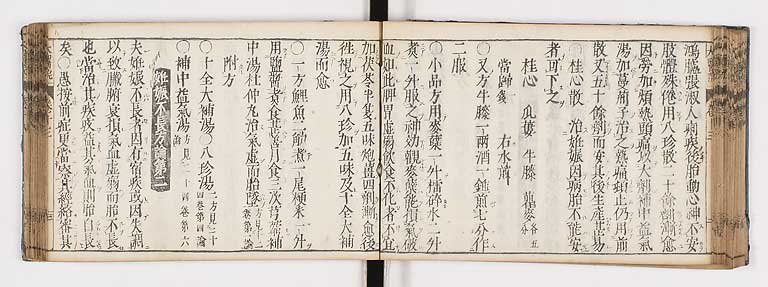 鴻臚張淑人痢疾後胎動心神不安
肢體殊倦用八珍散二十餘劑漸愈
因勞加煩熱頭痛以大劑補中益氣
湯加蔓荊子治之熱痛頓止仍用前
散又五十餘劑而安其後生產甚易
○桂心散 治妊娠因病胎不能安
者可下之
桂心 瓜蔞 牛膝 瞿麥各五分
當歸錢 右水煎
○又方牛膝一兩酒一鍾煎七分作
二服
○小品方用麥蘗一升擂碎水二升
煮一升服之神効觀麥蘗能損氣破
血如此脾胃虛弱飲食不化者不宜
加茯苓半夏五味炮薑四劑漸愈後
往視之用八珍加五味及十全大補
湯而愈
○一方鯉魚二斤煮二尾粳米一升
用鹽醬煮食甚善月食三次
中湯杜仲丸治氣虛而胎墜
附方
○十全大補湯○八珍湯二方見二十四卷第四論
○補中益氣湯方見二十四卷第六
妊娠不長方論第二
夫妊娠不長者因有宿疾或因失調
以致臟腑衰損氣血虛弱而胎不長
也當治其疾或益其氣血則胎自長
矣○愚按前症更當察其經絡審其